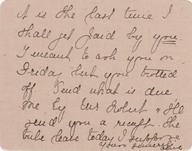 it is the last time I
shall get paid by you
I meant to ask you on
Friday but you trotted
off send what is due
me by Ent Robert & I'll
send you a receipt the
bale leaves today I
yours sincerely